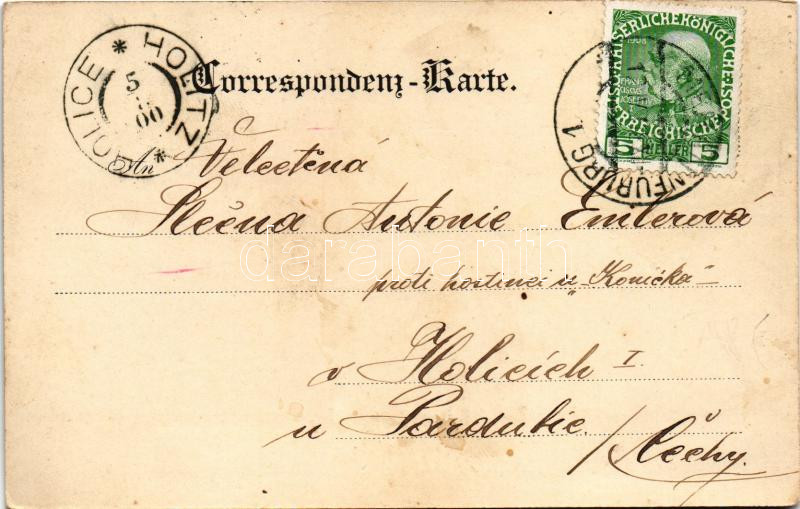 HOLICE * HOLITZ *
5
00
Correspondenz-Karte.
KAISERLICHEKÖNIGLICHE
ÖSTERREICHISCHE POST
1908
5 HELLER 5
NEUBURG 1
An Velectěná
Slečna Antonie Emlerová
darabanth
proti hostinci u „Konička"
v Holicích I.
u Pardubic.
/Čechy.